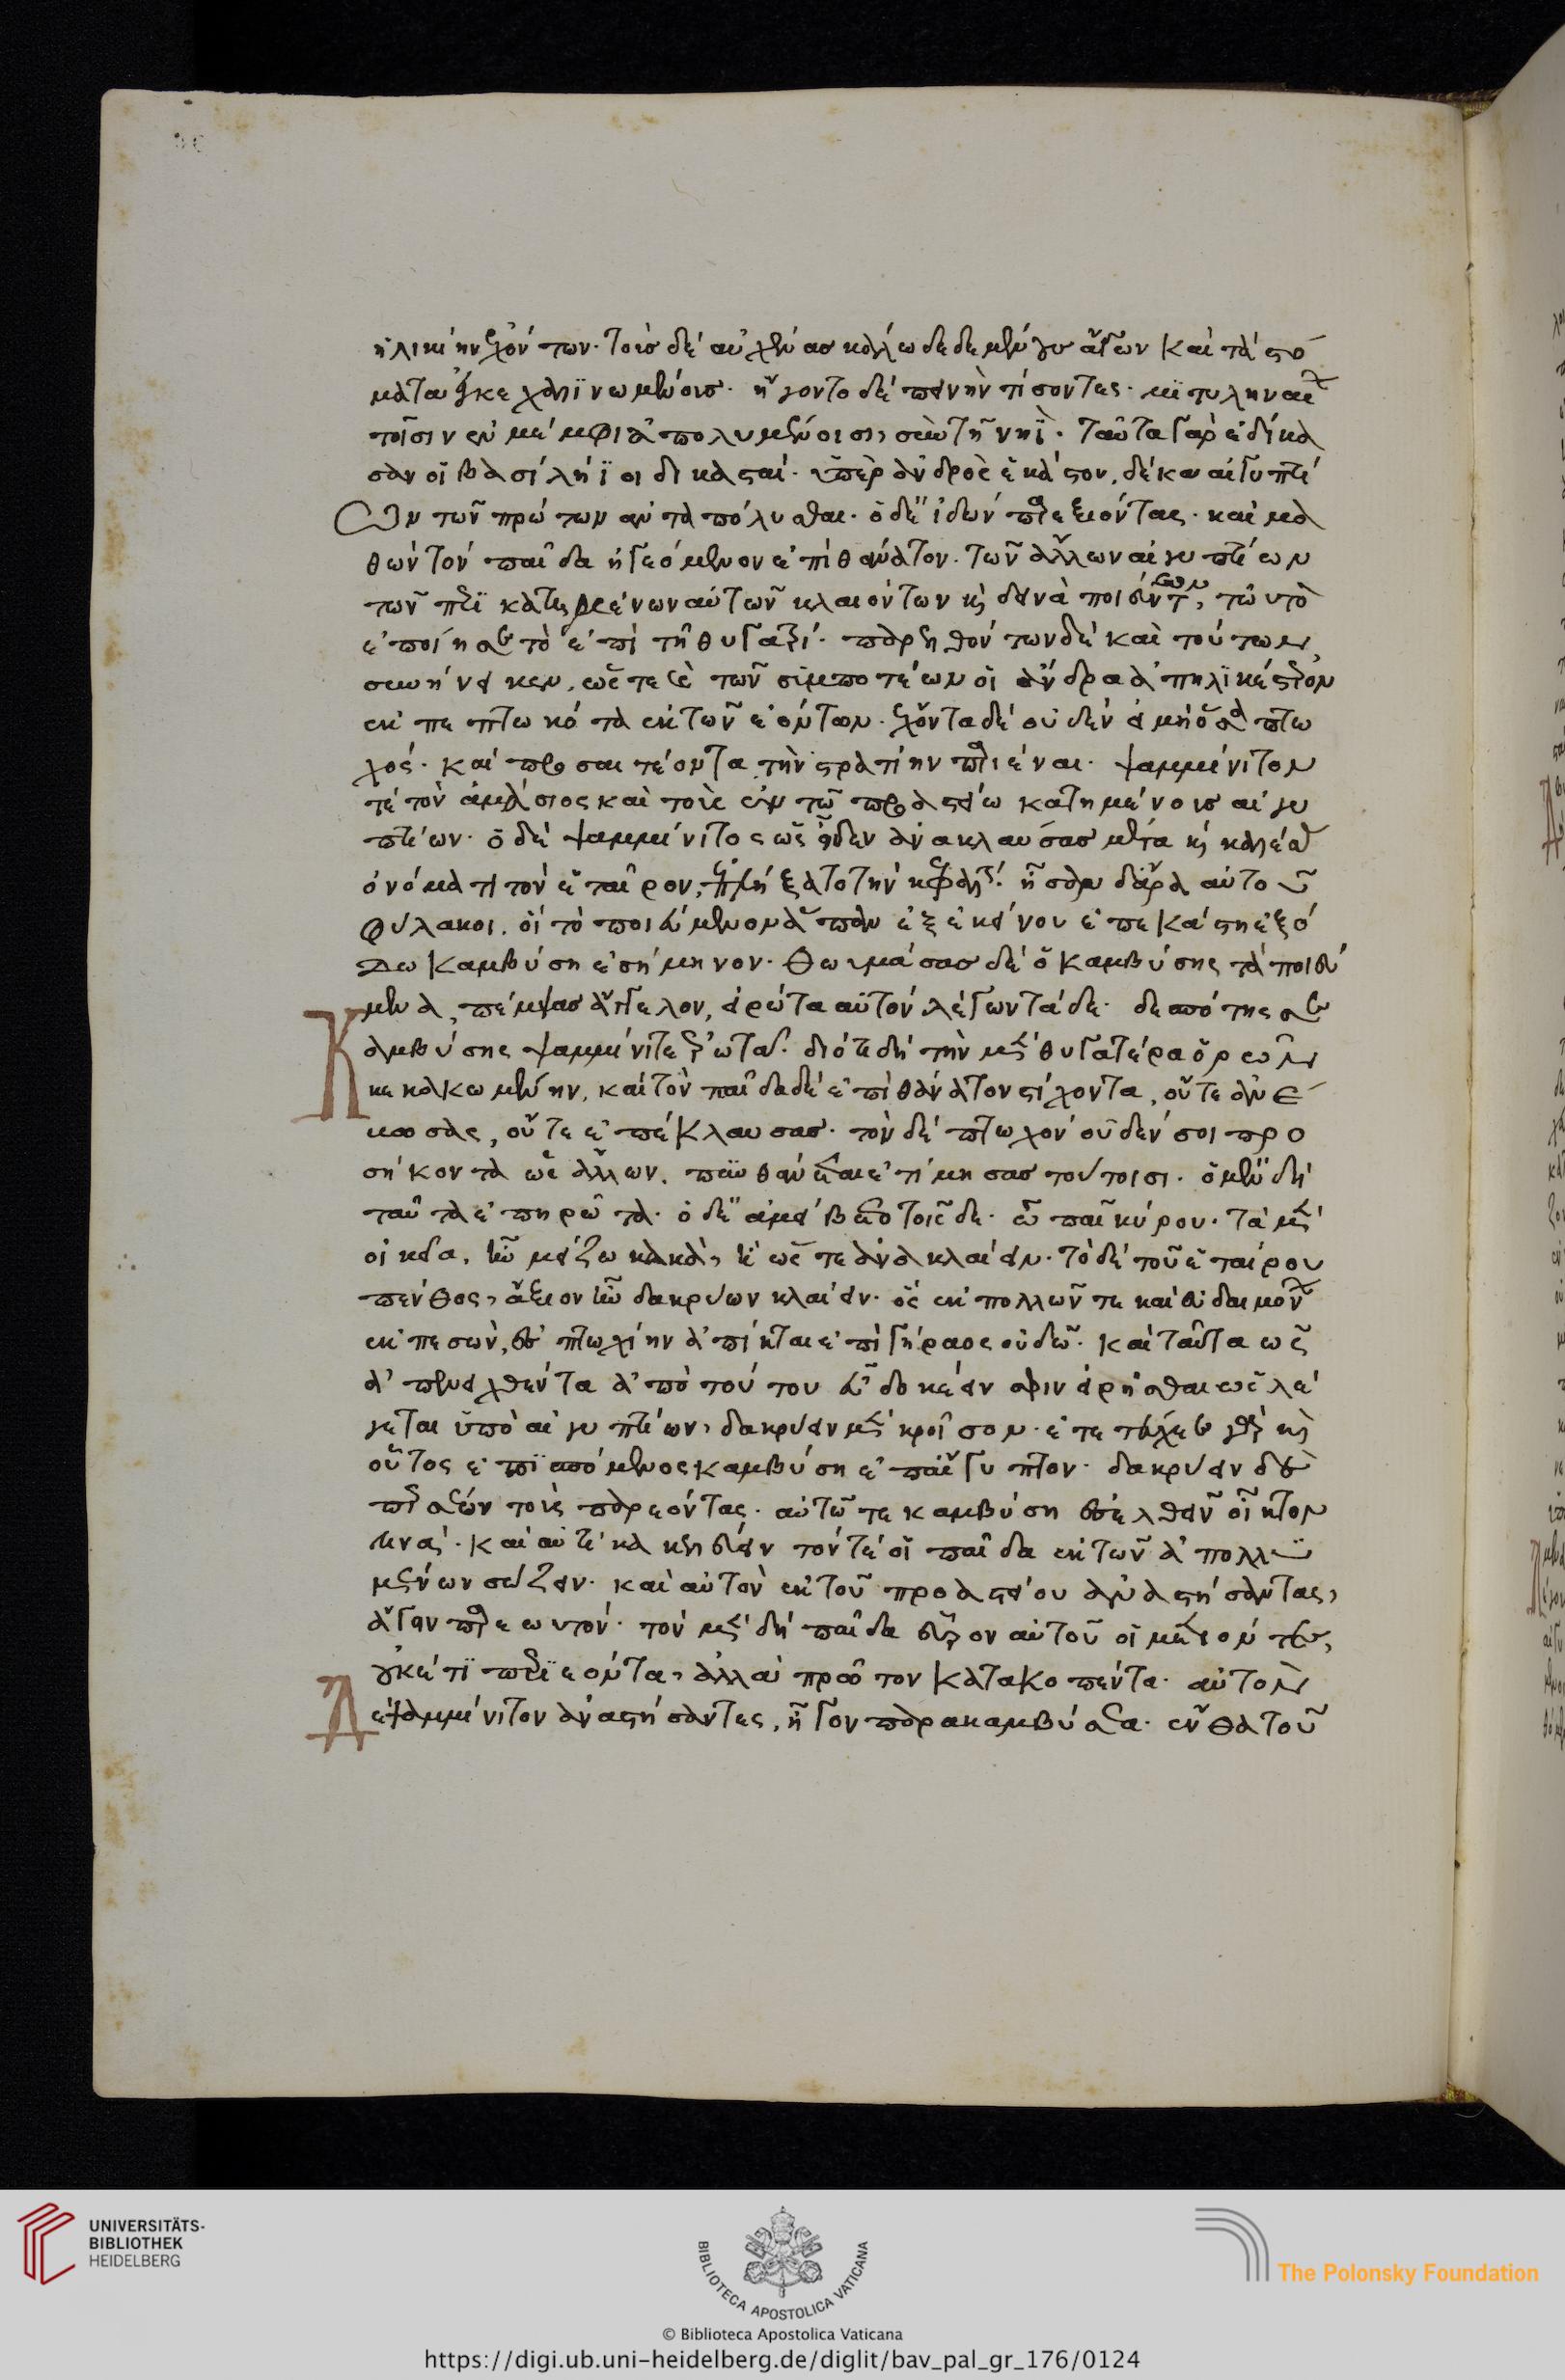 ἡλικίην ἐχόντων· τοὺς δὲ αὐχένας κάλῳ δεδεμένους ἄγων καὶ τὰ στό
ματα ἐγκεχαλινωμένους· ἤγοντο δὲ ποινὴν τίσοντες· μιτυληναίων
τοῖσιν ἐν μέμφι ἀπολομένοισι, σὺν τῇ νηΐ· ταῦτα γὰρ ἐδίκα
σαν οἱ βασιλήϊοι δικασταί· ὑπὲρ ἀνδρὸς ἑκάστου, δέκα αἰγυπτί
ων τῶν πρώτων ἀνταπόλυσθαι· ὁ δὲ ἰδὼν παρεξιόντας· καὶ μα
θὼν τὸν παῖδα ἡγεόμενον ἐπὶ θάνατον· τῶν ἄλλων αἰγυπτίων
τῶν περικατημένων αὐτὸν κλαιόντων καὶ δεινὰ ποιούντων, τὠυτὸ
ἐποίησε τὸ ἐπὶ τῇ θυγατρί· παρελθόντων δὲ καὶ τούτων,
συνήνεικεν, ὥστε τῶν συμποτέων οἱ ἄνδρα ἀπηλικέστερον
ἐκπεπτωκότα ἐκ τῶν ἐόντων· ἔχοντα δὲ οὐδὲν εἰ μὴ ὅσα πτω
χός· καὶ προσαιτέοντα τὴν στρατιὴν παριέναι· ψαμμήνιτόν
τε τὸν ἀμάσιος καὶ τοὺς ἐν τῷ προαστείῳ κατημένους αἰγυ
πτίων· ὁ δὲ ψαμμήνιτος ὡς εἶδεν ἀνακλαύσας μέγα καὶ καλέσας
ὀνόματι τὸν ἑταῖρον, ἐπλήξατο τὴν κεφαλήν· ἦσαν δ' ἄρα αὐτοῦ
φύλακοι, οἳ τὸ ποιεύμενον πᾶν ἐξ ἐκείνου ἐπ' ἑκάστῃ ἐξό
δῳ καμβύσῃ ἐσήμηνον· θωυμάσας δὲ ὁ καμβύσης τὰ ποιεύ
μενα, πέμψας ἄγγελον, εἰρώτα αὐτὸν λέγων τάδε· δεσπότης σε
καμβύσης ψαμμήνιτε εἰρωτᾷ· διότι δὴ τὴν μὲν θυγατέρα ὁρέων
κεκακωμένην, καὶ τὸν παῖδα δὲ ἐπὶ θάνατον στίχοντα, οὔτε ἀνέ
βωσας, οὔτε ἐπέκλαυσας· τὸν δὲ πτωχὸν οὐδέν σοι προ
σήκοντα ὡς ἄλλων πυνθάνεται ἐτίμησας τούτοισι· ὁ μὲν δὴ
ταῦτα ἐπηρώτα· ὁ δὲ ἀμείβετο τοῖσδε· ὦ παῖ κύρου· τὰ μὲν
οἰκεῖα, ἦν μείζω κακὰ, ἢ ὥστε ἀνακλαίειν· τὸ δὲ τοῦ ἑταίρου
πένθος, ἄξιον ἦν δακρύων κλαίειν· ὃς ἐκ πολλῶν τε καὶ εὐδαιμόνων
ἐκπεσὼν, ἐς πτωχίην ἀπῖκται ἐπὶ γήραος οὐδῷ· καὶ ταῦτα ὡς
ἀπενειχθέντα ἀπὸ τούτου εὖ δοκέειν σφιν εἰρῆσθαι ὡς λέ
γεται ὑπὸ αἰγυπτίων, δακρύειν μὲν κροῖσον· ἐτετεύχεε γὰρ καὶ
οὗτος ἐπισπόμενος καμβύσῃ ἐπ' αἴγυπτον· δακρύειν δὲ
περσέων τοὺς παρεόντας· αὐτῷ τε καμβύσῃ ἐσελθεῖν οἶκτόν
τινα· καὶ αὐτίκα κελεύειν τόν τέ οἱ παῖδα ἐκ τῶν ἀπολλυ
μένων σώζειν· καὶ αὐτὸν ἐκ τοῦ προαστείου ἀναστήσαντας,
ἄγειν παρ' ἑωυτόν· τὸν μὲν δὴ παῖδα εὗρον αὐτοῦ οἱ μετιόντες,
οὐκέτι περιεόντα, ἀλλὰ πρῶτον κατακοπέντα· αὐτὸν
δὲ ψαμμήνιτον ἀναστήσαντες, ἦγον παρὰ καμβύσεα· ἔνθα τοῦ
UNIVERSITÄTS-
BIBLIOTHEK
HEIDELBERG
BIBLIOTECA APOSTOLICA VATICANA
The Polonsky Foundation
© Biblioteca Apostolica Vaticana
https://digi.ub.uni-heidelberg.de/diglit/bav_pal_gr_176/0124